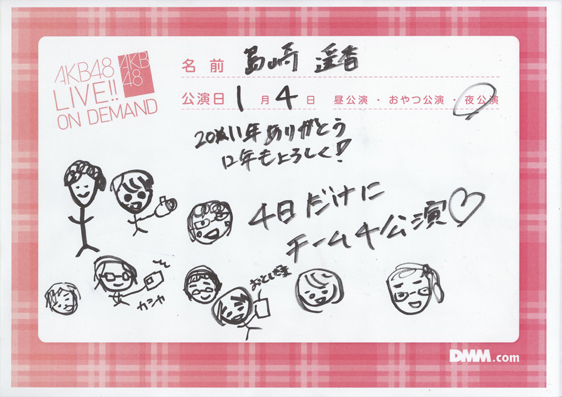 AKB48
LIVE!!
ON DEMAND
AKB
48
名前 島崎 遥香
公演日 1月4日 昼公演・おやつ公演・夜公演
2011年ありがとう
12年もよろしく!
4日だけに
チーム4公演♡
カシャ
おとしだま
DMM.com